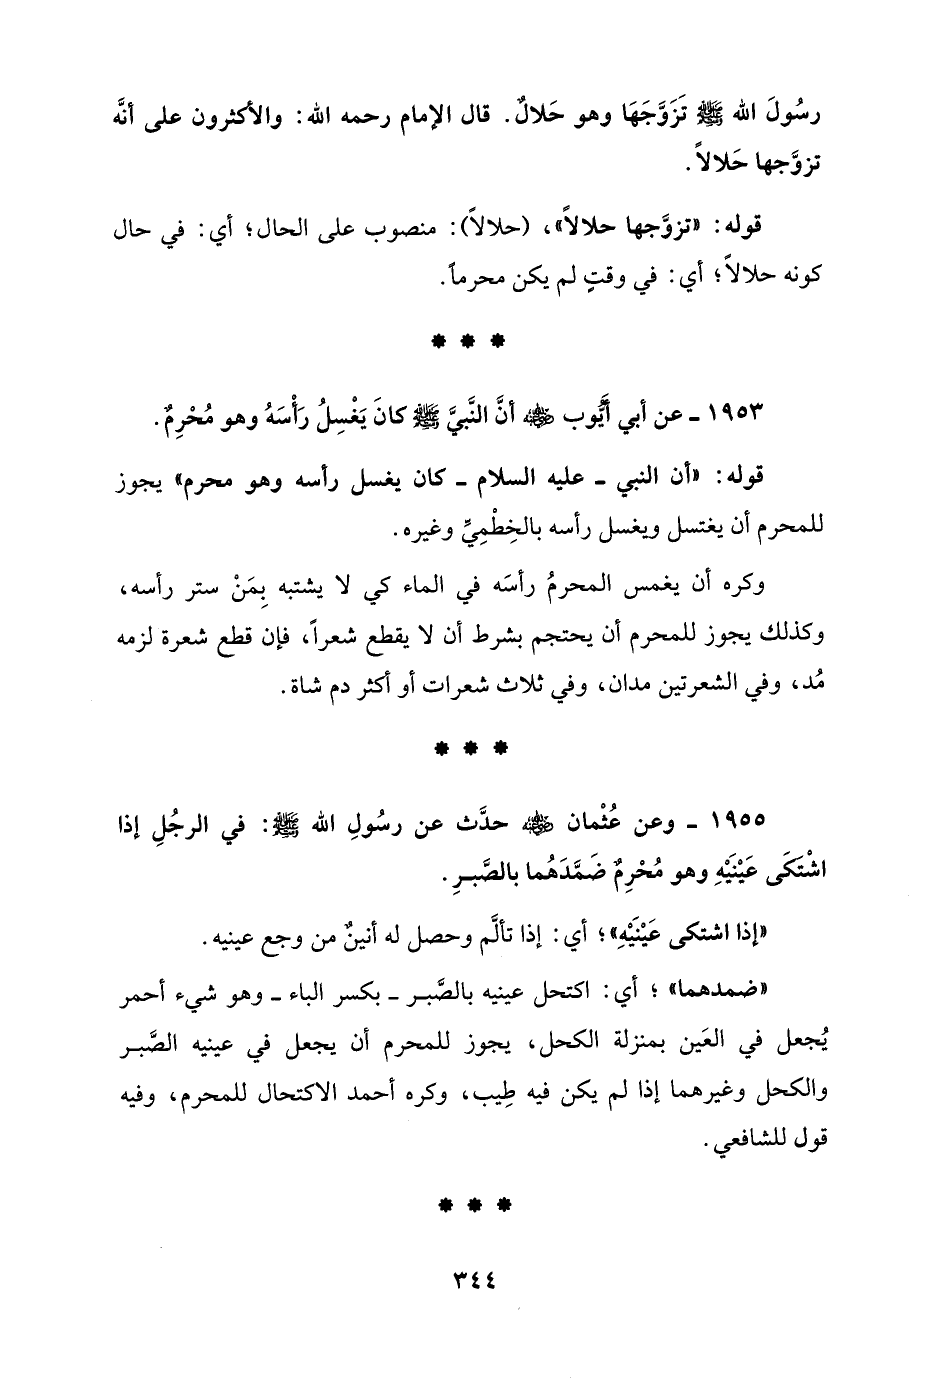 رسُولَ الله ﷺ تَزَوَّجَهَا وهو حَلالٌ. قال الإمام رحمه الله: والأكثرون على أنَّه
تزوَّجها حَلالاً.
قوله: «تزوَّجها حلالاً»، (حلالاً): منصوب على الحال؛ أي: في حال
كونه حلالاً؛ أي: في وقتٍ لم يكن محرماً.
* * *
١٩٥٣ ـ عن أبي أيُّوب ﵁ أنَّ النَّبيَّ ﷺ كانَ يَغْسِلُ رَأْسَهُ وهو مُحْرِمٌ.
قوله: «أن النبي ـ عليه السلام ـ كان يغسل رأسه وهو محرم» يجوز
للمحرم أن يغتسل ويغسل رأسه بالخِطْمِيِّ وغيره.
وكره أن يغمس المحرمُ رأسَه في الماء كي لا يشتبه بِمَنْ ستر رأسه،
وكذلك يجوز للمحرم أن يحتجم بشرط أن لا يقطع شعراً، فإن قطع شعرة لزمه
مُد، وفي الشعرتين مدان، وفي ثلاث شعرات أو أكثر دم شاة.
* * *
١٩٥٥ ـ وعن عُثْمان ﵁ حدَّث عن رسُولِ الله ﷺ: في الرجُلِ إذا
اشْتَكَى عَيْنَيْهِ وهو مُحْرِمٌ ضَمَّدَهُما بالصَّبرِ.
«إذا اشتكى عَيْنَيْهِ»؛ أي: إذا تألَّم وحصل له أنينٌ من وجع عينيه.
«ضمدهما» ؛ أي: اكتحل عينيه بالصَّبر ـ بكسر الباء ـ وهو شيء أحمر
يُجعل في العَين بمنزلة الكحل، يجوز للمحرم أن يجعل في عينيه الصَّبر
والكحل وغيرهما إذا لم يكن فيه طِيب، وكره أحمد الاكتحال للمحرم، وفيه
قول للشافعي.
* * *
٣٤٤